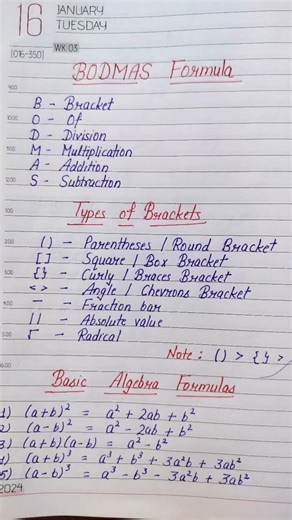 16
JANUARY
TUESDAY
(016-350)
WK 03
BODMAS Formula
B - Bracket
O - Of
D - Division
M - Multiplication
A - Addition
S - Subtraction
Types of Brackets
( ) - Parentheses / Round Bracket
[ ] - Square / Box Bracket
{ } - Curly / Braces Bracket
< > - Angle / Chevrons Bracket
— - Fraction bar
| | - Absolute value
√ - Radical
Note : ( ) > { } >
Basic Algebra Formulas
1) (a+b)² = a² + 2ab + b²
2) (a-b)² = a² - 2ab + b²
3) (a+b)(a-b) = a² - b²
4) (a+b)³ = a³ + b³ + 3a²b + 3ab²
5) (a-b)³ = a³ - b³ - 3a²b + 3ab²
2024